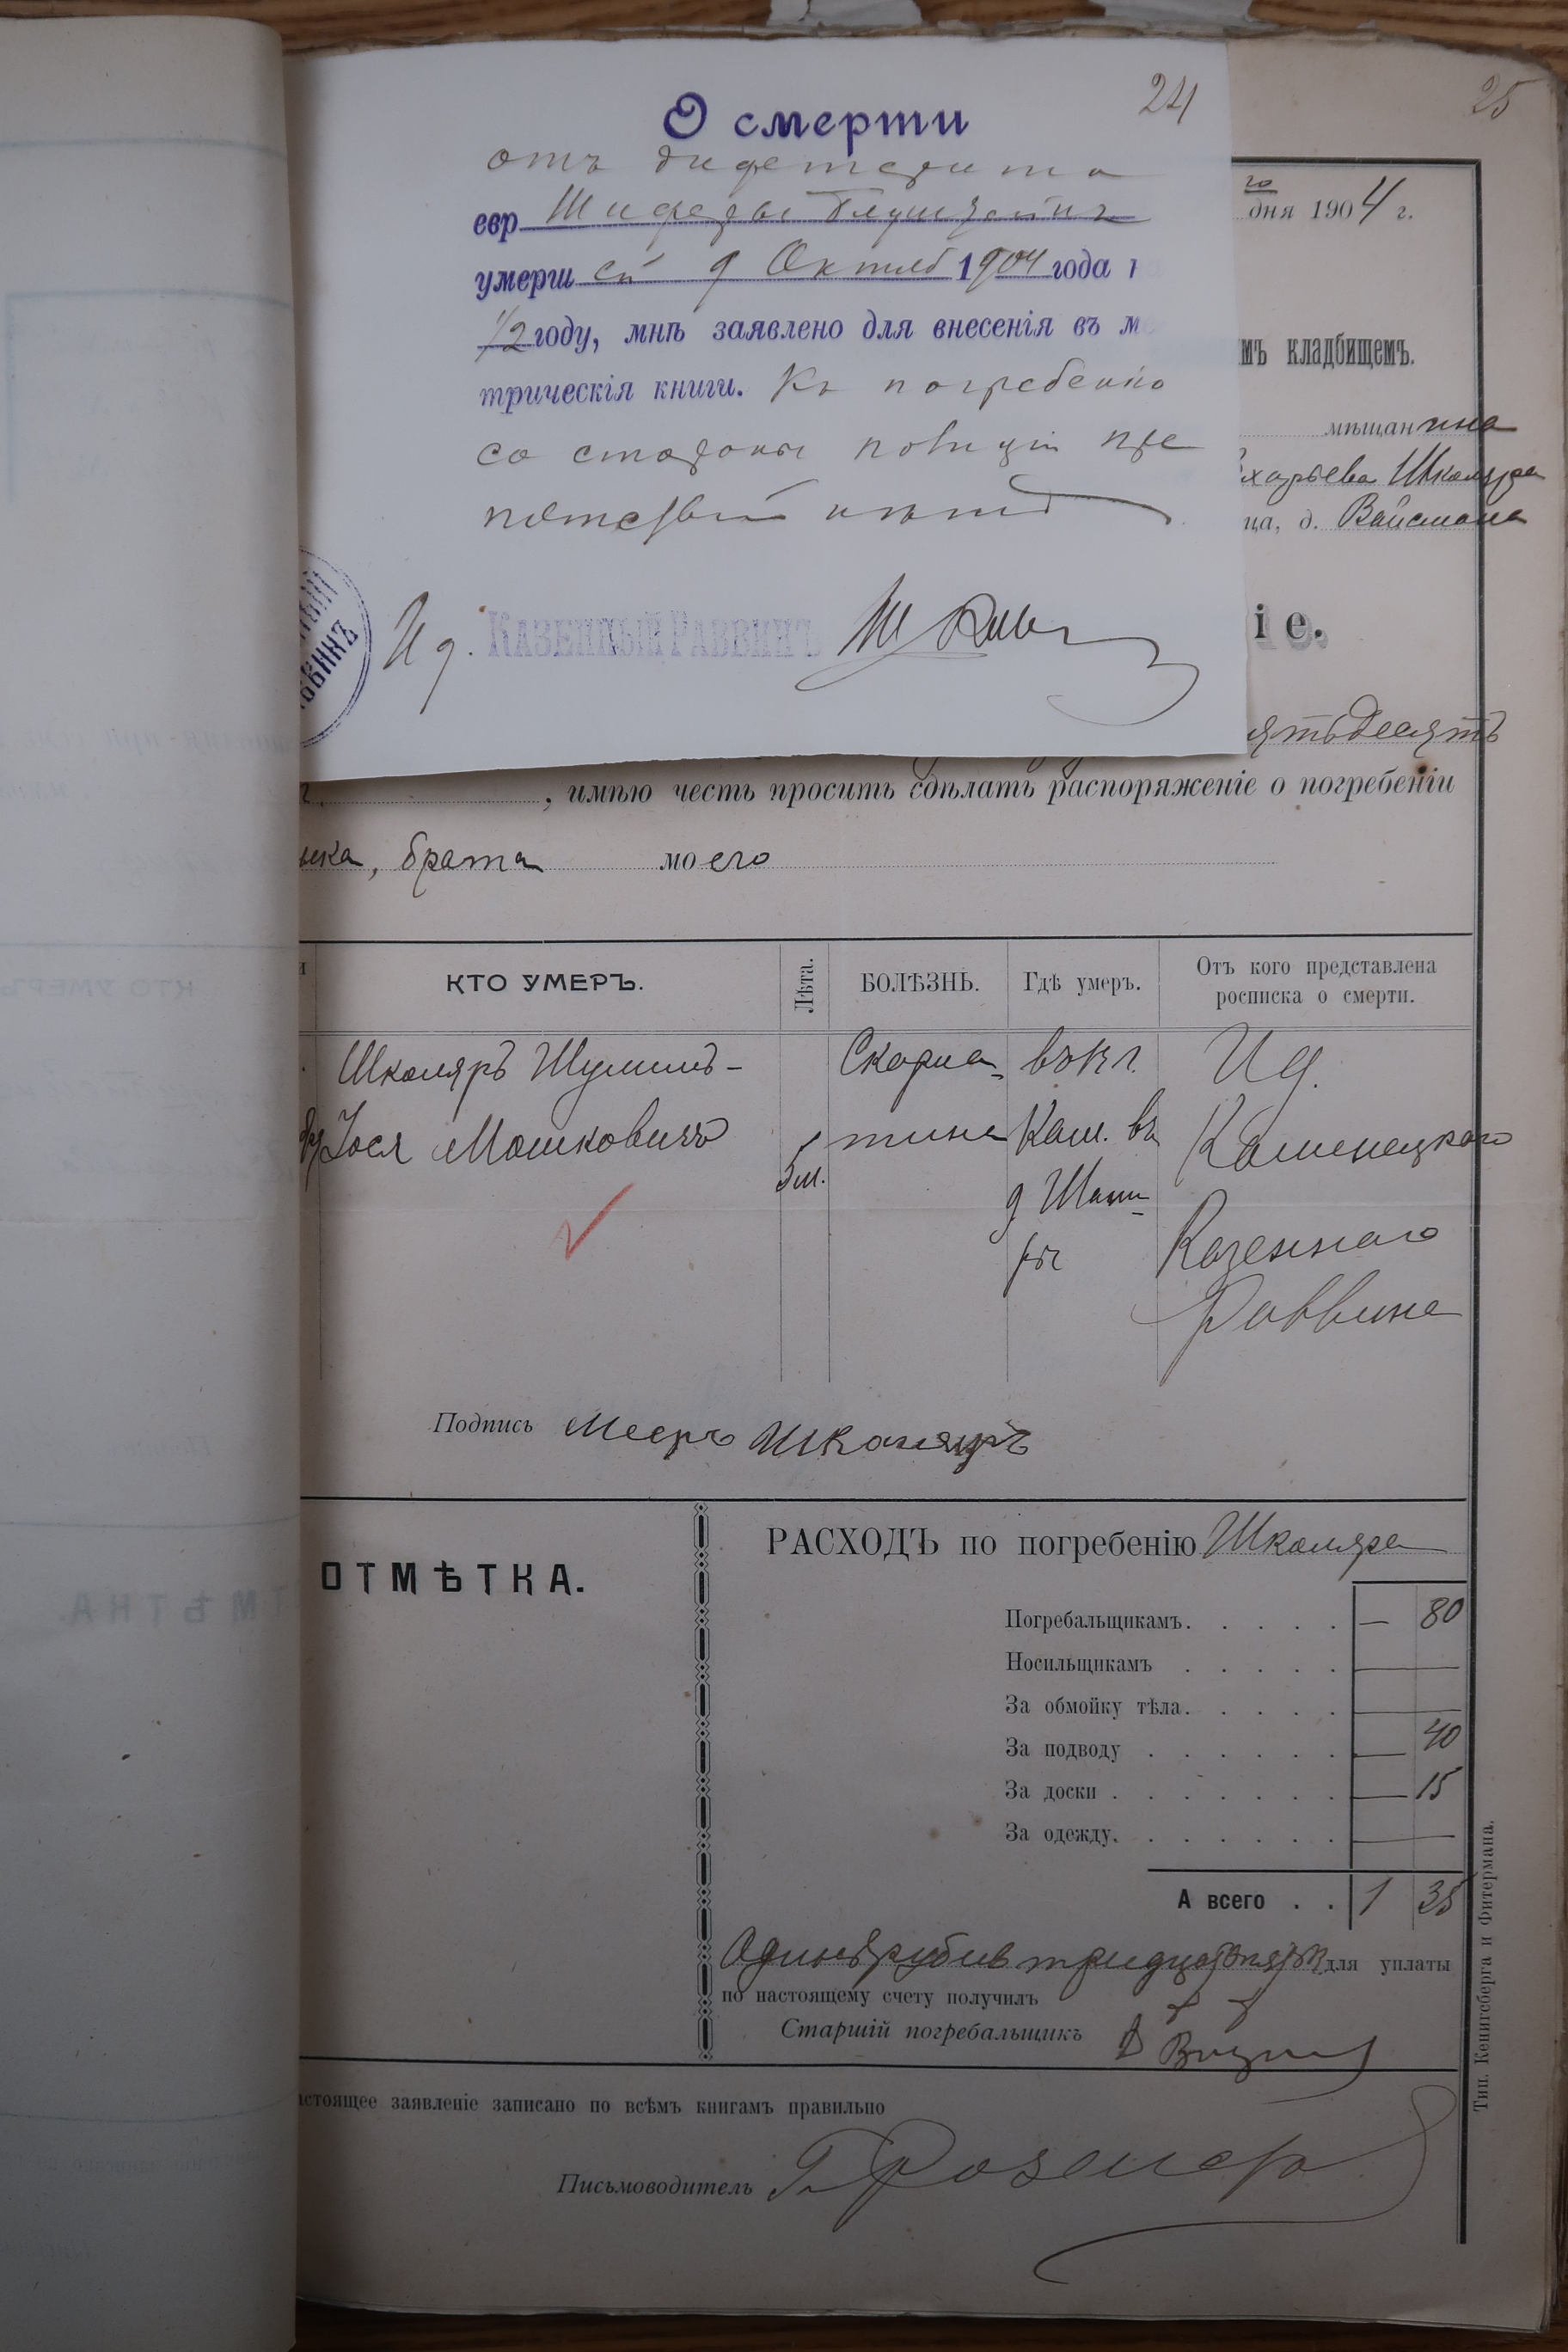 24
25
О смерти
отъ дифтерита
евр Шифры
умерш ей 9 Октяб 1904 года н
1/2 году, мнѣ заявлено для внесенія въ ме
трическія книги. Къ погребенію
со стороны полиціи пре
пятствій нѣтъ
И д. КАЗЕННЫЙ РАВВИНЪ
го
дня 1904 г.
мъ кладбищемъ.
мѣщанина
Школяра
ца, д. Вайсмана
іе.
ятьдесятъ
, имѣю честь просить сдѣлать распоряженіе о погребеніи
, брата моего
КТО УМЕРЪ. Лѣта. БОЛѢЗНЬ. Гдѣ умеръ. Отъ кого представлена
росписка о смерти.
Школяръ Шулимъ- Скарла- въ И д.
Іося Мошковичъ тина Кам. въ Каменецкаго
Казеннаго
Раввина
Подпись Мееръ Школяръ
ОТМѢТКА.
РАСХОДЪ по погребенію Школяра
Погребальщикамъ. . . . . — 80
Носильщикамъ . . . . . —
За обмойку тѣла. . . . . —
За подводу . . . . . . — 40
За доски . . . . . . . — 15
За одежду. . . . . . . —
А всего . . 1 35
Одинъ рубль тридцать пять к для уплаты
по настоящему счету получилъ
Старшій погребальщикъ
астоящее заявленіе записано по всѣмъ книгамъ правильно
Письмоводитель
Тип. Кенигсберга и Фитермана.